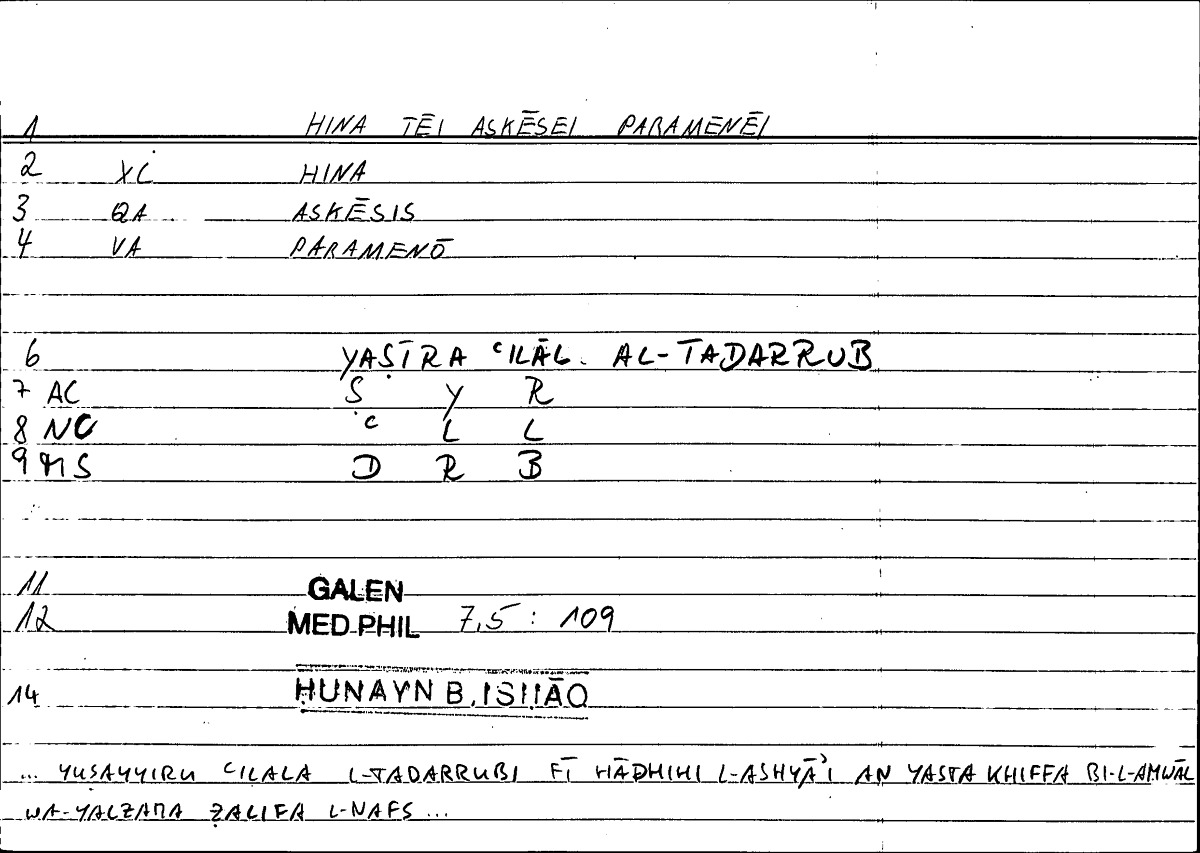 1 HINA TĒI ASKĒSEI PARAMENĒI
2 XC HINA
3 QA ASKĒSIS
4 VA PARAMENŌ
6 YAṢĪRA ʿILĀL AL-TADARRUB
7 AC Ṣ Y R
8 NC ʿ L L
9 MS D R B
11 GALEN
12 MED.PHIL 7,5 : 109
14 ḤUNAYN B. ISḤĀQ
... YUṢAYYIRU ʿILALA L-TADARRUBI FĪ HĀDHIHI L-ASHYĀʾI AN YASTAKHIFFA BI-L-AMWĀL
WA-YALZAMA ẒALIFA L-NAFS ...